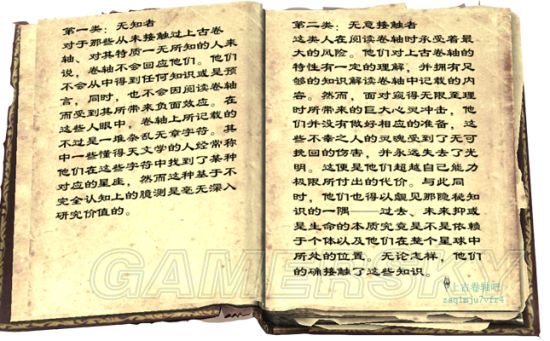 第一类：无知者
对于那些从未接触过上古卷
轴、对其特质一无所知的人来
说，卷轴不会回应他们。他们
不会从中得到任何知识或是预
言，同时，也不会因阅读卷轴
而受到其所带来负面效应。在
这些人眼中，卷轴上所记载的
不过是一堆杂乱无章字符。其
中一些懂得天文学的人经常称
他们在这些字符中找到了某种
对应的星座，然而这种基于不
完全认知上的臆测是毫无深入
研究价值的。
第二类：无意接触者
这类人在阅读卷轴时承受着最
大的风险。他们对上古卷轴的
特性有一定的理解，并拥有足
够的知识解读卷轴中记载的内
容。然而，面对窥得无限至理
时所带来的巨大心灵冲击，他
们并没有做好相应的准备，这
些不幸之人的灵魂受到了无可
挽回的伤害，并永远失去了光
明。这便是他们超越自己能力
极限所付出的代价。与此同
时，他们也得以觑见那隐秘知
识的一隅——过去、未来抑或
是生命的本质究竟是不是依赖
于个体以及他们在整个星球中
所处的位置。无论怎样，他们
的确接触了这些知识。
GAMERSKY
上古卷轴吧
zaq1mju7vfr4